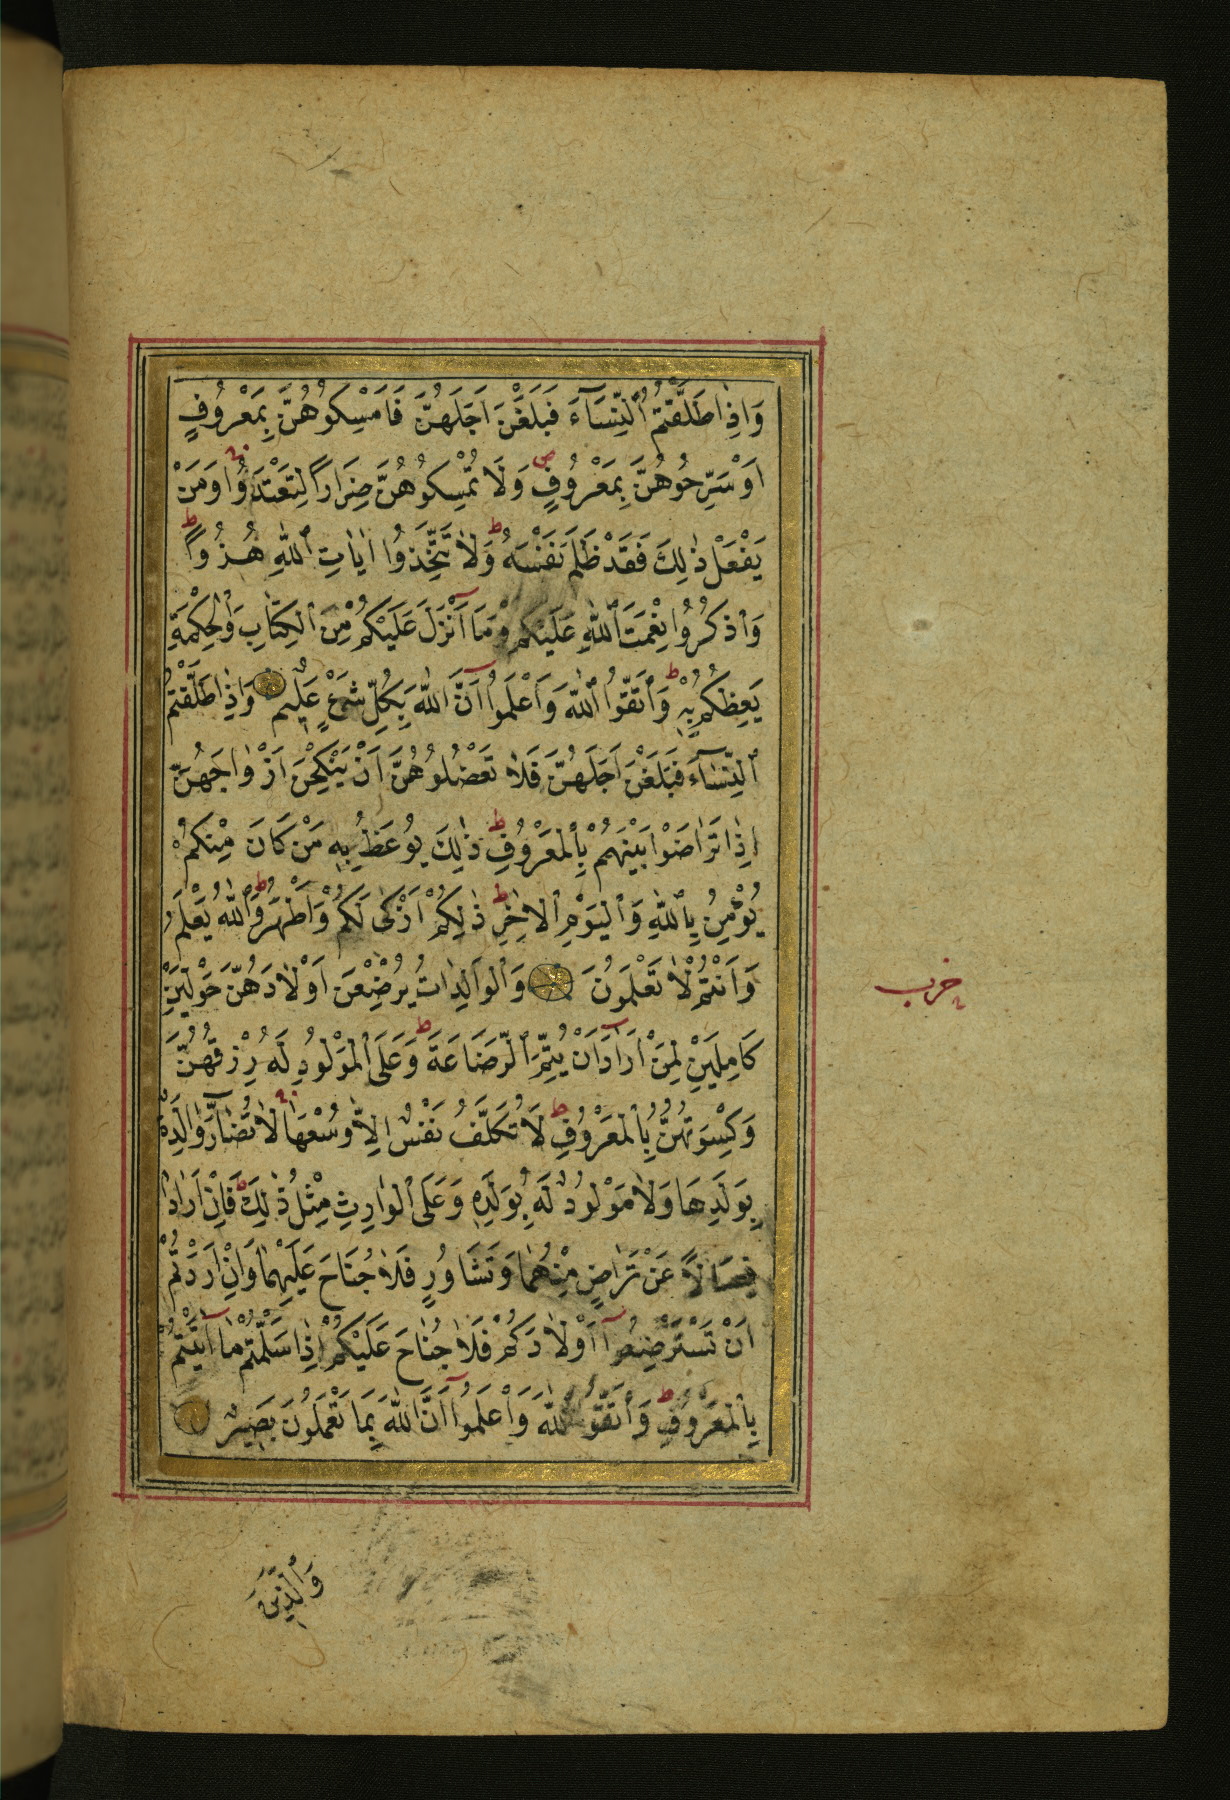 وَاِذَا طَلَّقْتُمُ ٱلنِّسَآءَ فَبَلَغْنَ اَجَلَهُنَّ فَاَمْسِكُوهُنَّ بِمَعْرُوفٍ
اَوْ سَرِّحُوهُنَّ بِمَعْرُوفٍ ص وَلَا تُمْسِكُوهُنَّ ضِرَاراً لِتَعْتَدُوا وَمَنْ
يَفْعَلْ ذٰلِكَ فَقَدْ ظَلَمَ نَفْسَهُ ط وَلَا تَتَّخِذُوا اٰيَاتِ ٱللّٰهِ هُزُواً ط
وَٱذْكُرُوا نِعْمَتَ ٱللّٰهِ عَلَيْكُمْ وَمَا اَنْزَلَ عَلَيْكُمْ مِنَ ٱلْكِتَابِ وَٱلْحِكْمَةِ
يَعِظُكُمْ بِهِ ط وَٱتَّقُوا ٱللّٰهَ وَٱعْلَمُوا اَنَّ ٱللّٰهَ بِكُلِّ شَىْءٍ عَلِيمٌ وَاِذَا طَلَّقْتُمُ
ٱلنِّسَآءَ فَبَلَغْنَ اَجَلَهُنَّ فَلَا تَعْضُلُوهُنَّ اَنْ يَنْكِحْنَ اَزْوَاجَهُنَّ
اِذَا تَرَاضَوْا بَيْنَهُمْ بِٱلْمَعْرُوفِ ط ذٰلِكَ يُوعَظُ بِهِ مَنْ كَانَ مِنْكُمْ
يُؤْمِنُ بِٱللّٰهِ وَٱلْيَوْمِ ٱلْاٰخِرِ ط ذٰلِكُمْ اَزْكٰى لَكُمْ وَاَطْهَرُ ط وَٱللّٰهُ يَعْلَمُ
وَاَنْتُمْ لَا تَعْلَمُونَ وَٱلْوَالِدَاتُ يُرْضِعْنَ اَوْلَادَهُنَّ حَوْلَيْنِ
كَامِلَيْنِ لِمَنْ اَرَادَ اَنْ يُتِمَّ ٱلرَّضَاعَةَ ط وَعَلَى ٱلْمَوْلُودِ لَهُ رِزْقُهُنَّ
وَكِسْوَتُهُنَّ بِٱلْمَعْرُوفِ ط لَا تُكَلَّفُ نَفْسٌ اِلَّا وُسْعَهَا لَا تُضَآرَّ وَالِدَةٌ
بِوَلَدِهَا وَلَا مَوْلُودٌ لَهُ بِوَلَدِهِ وَعَلَى ٱلْوَارِثِ مِثْلُ ذٰلِكَ ط فَاِنْ اَرَادَا
فِصَالاً عَنْ تَرَاضٍ مِنْهُمَا وَتَشَاوُرٍ فَلَا جُنَاحَ عَلَيْهِمَا وَاِنْ اَرَدْتُمْ
اَنْ تَسْتَرْضِعُوا اَوْلَادَكُمْ فَلَا جُنَاحَ عَلَيْكُمْ اِذَا سَلَّمْتُمْ مَا اٰتَيْتُمْ
بِٱلْمَعْرُوفِ ط وَٱتَّقُوا ٱللّٰهَ وَٱعْلَمُوا اَنَّ ٱللّٰهَ بِمَا تَعْمَلُونَ بَصِيرٌ
حزب
وَٱلَّذِينَ